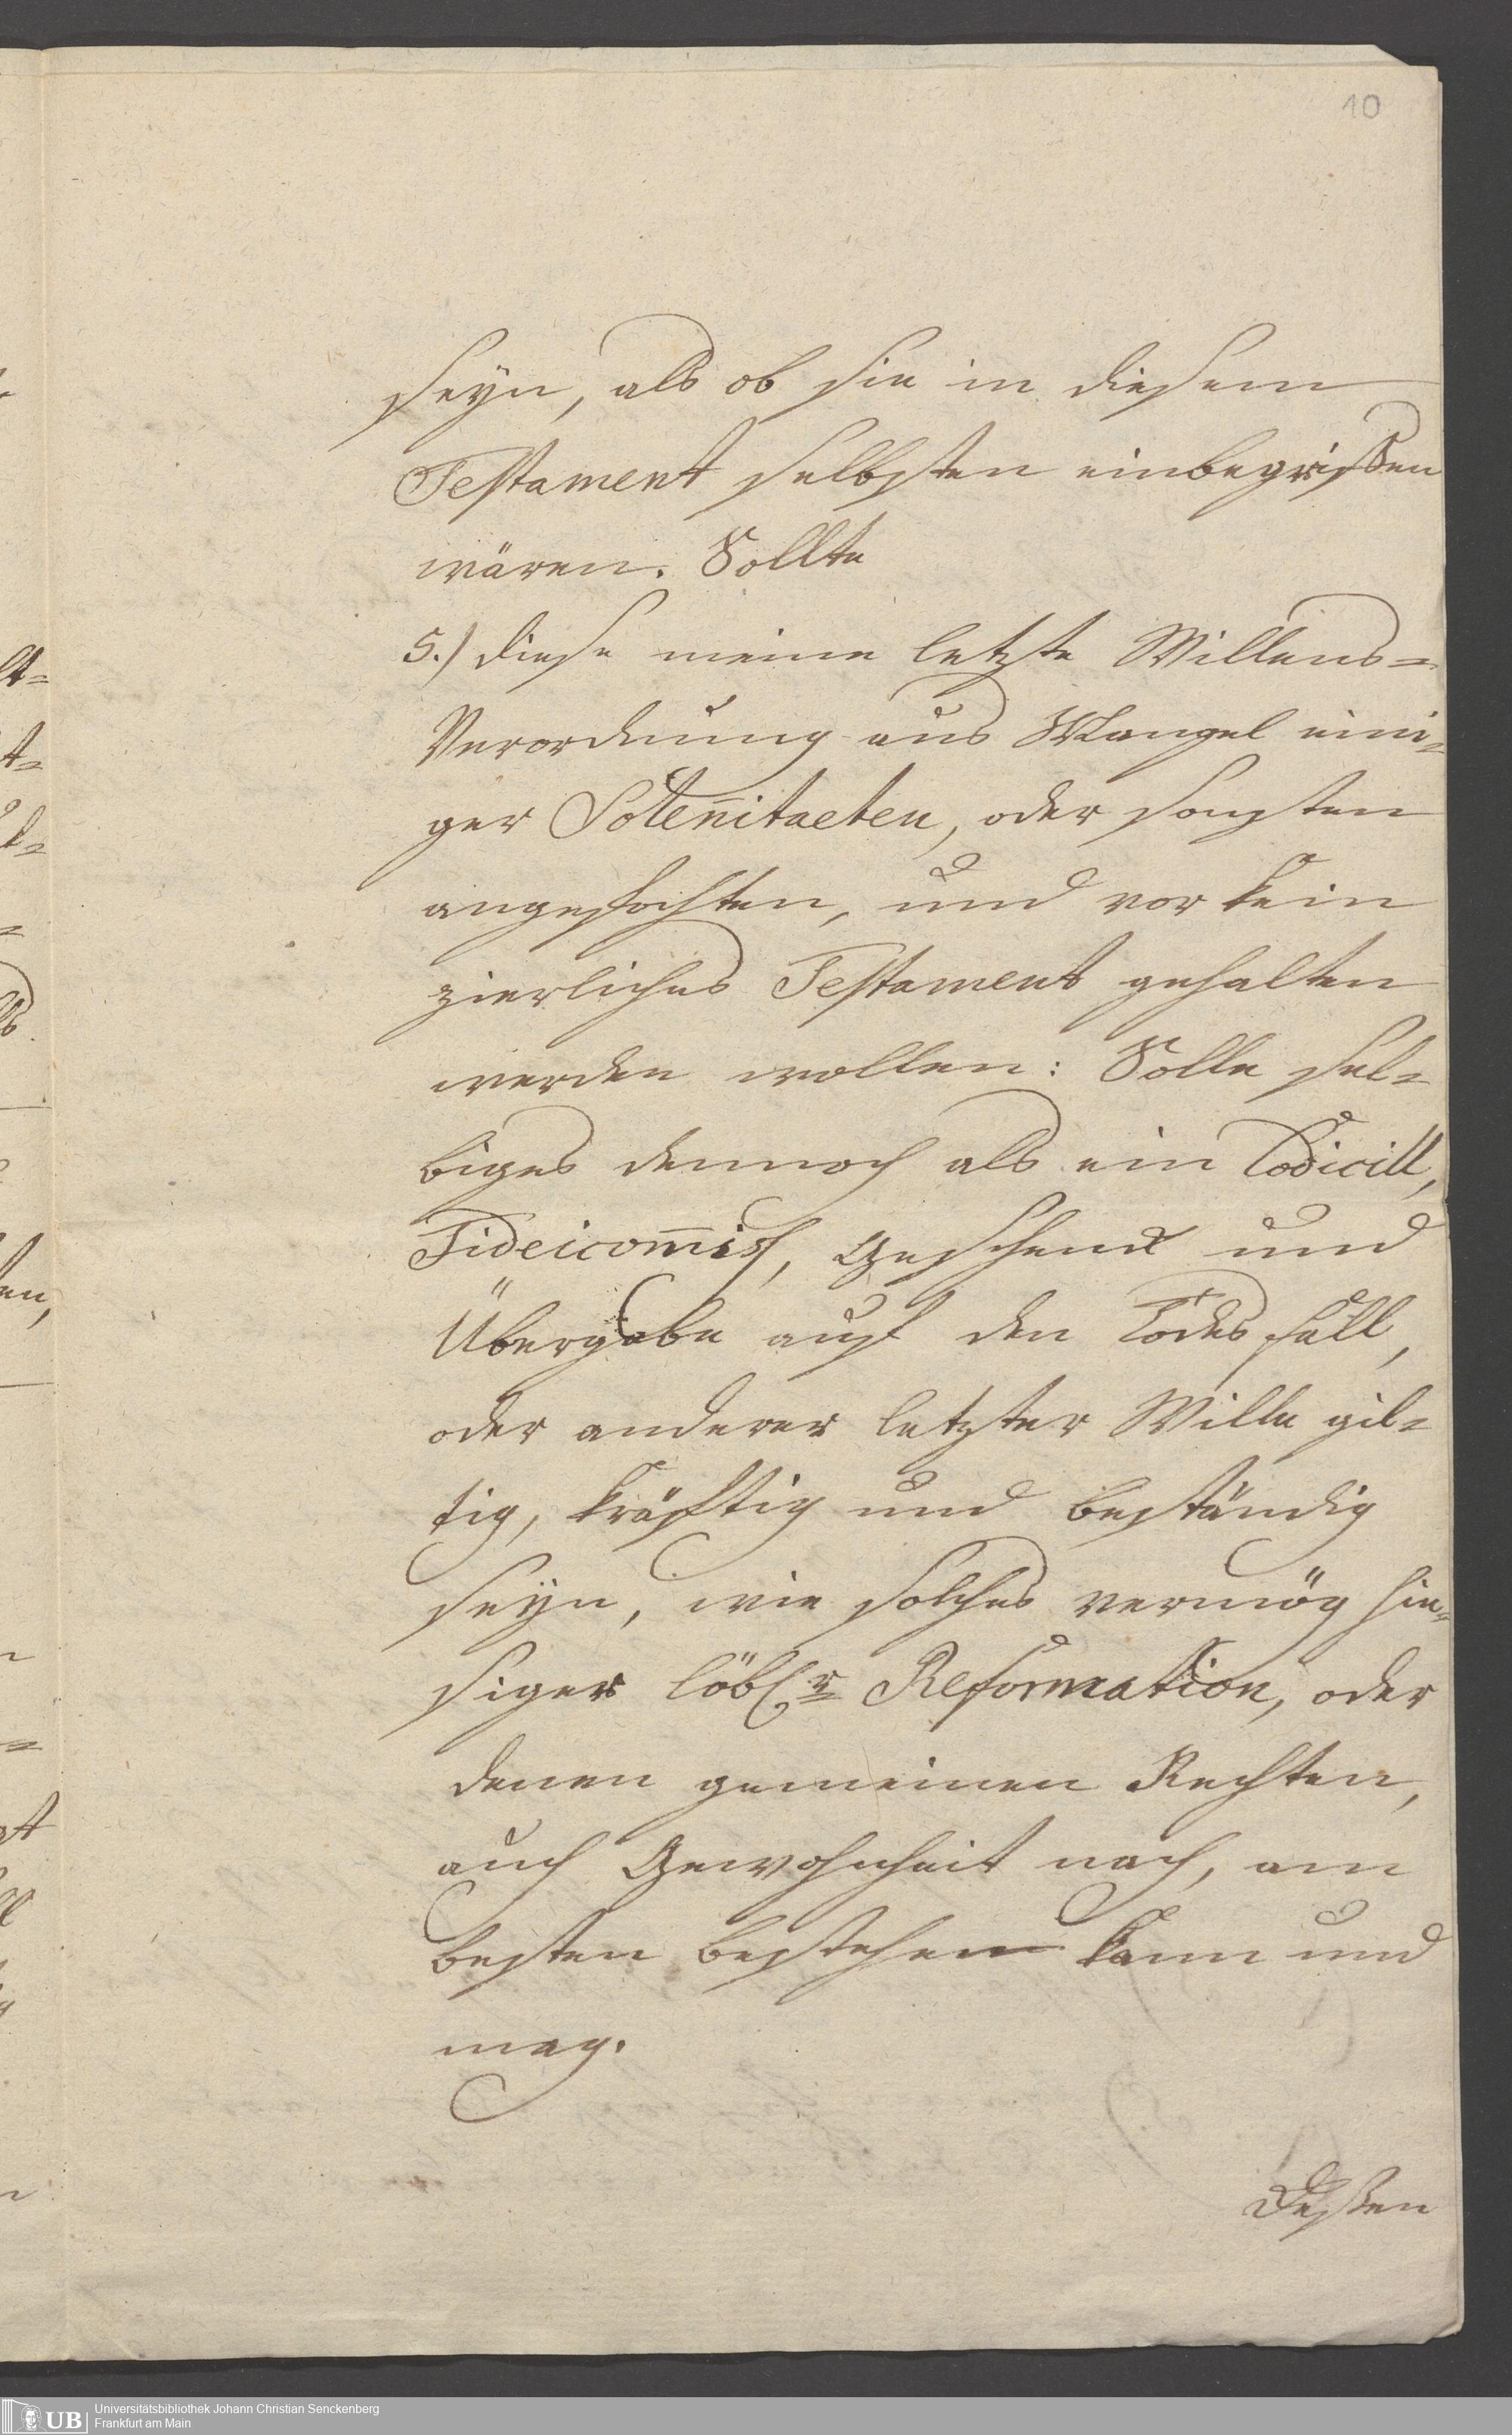 10
seyn, als ob sie in diesem
Testament selbsten einbegriffen
wären. Sollte
5.) diese meine letzte Willens=
Verordnung aus Mangel eini=
ger Solen̅itaeten, oder sonsten
angefochten, und vor kein
zierliches Testament gehalten
werden wollen: Solle sel=
biges dennoch als ein Codicill,
Fideicom̅iss, Geschenk und
Übergabe auf den Todesfall,
oder anderer letzter Wille gil=
tig, kräftig und beständig
seyn, wie solches vermög hie=
siger löbl.r Reformation, oder
denen gemeinen Rechten,
auch Gewohnheit nach, am
besten bestehen kann und
mag.
Dessen
UB
Universitätsbibliothek Johann Christian Senckenberg
Frankfurt am Main